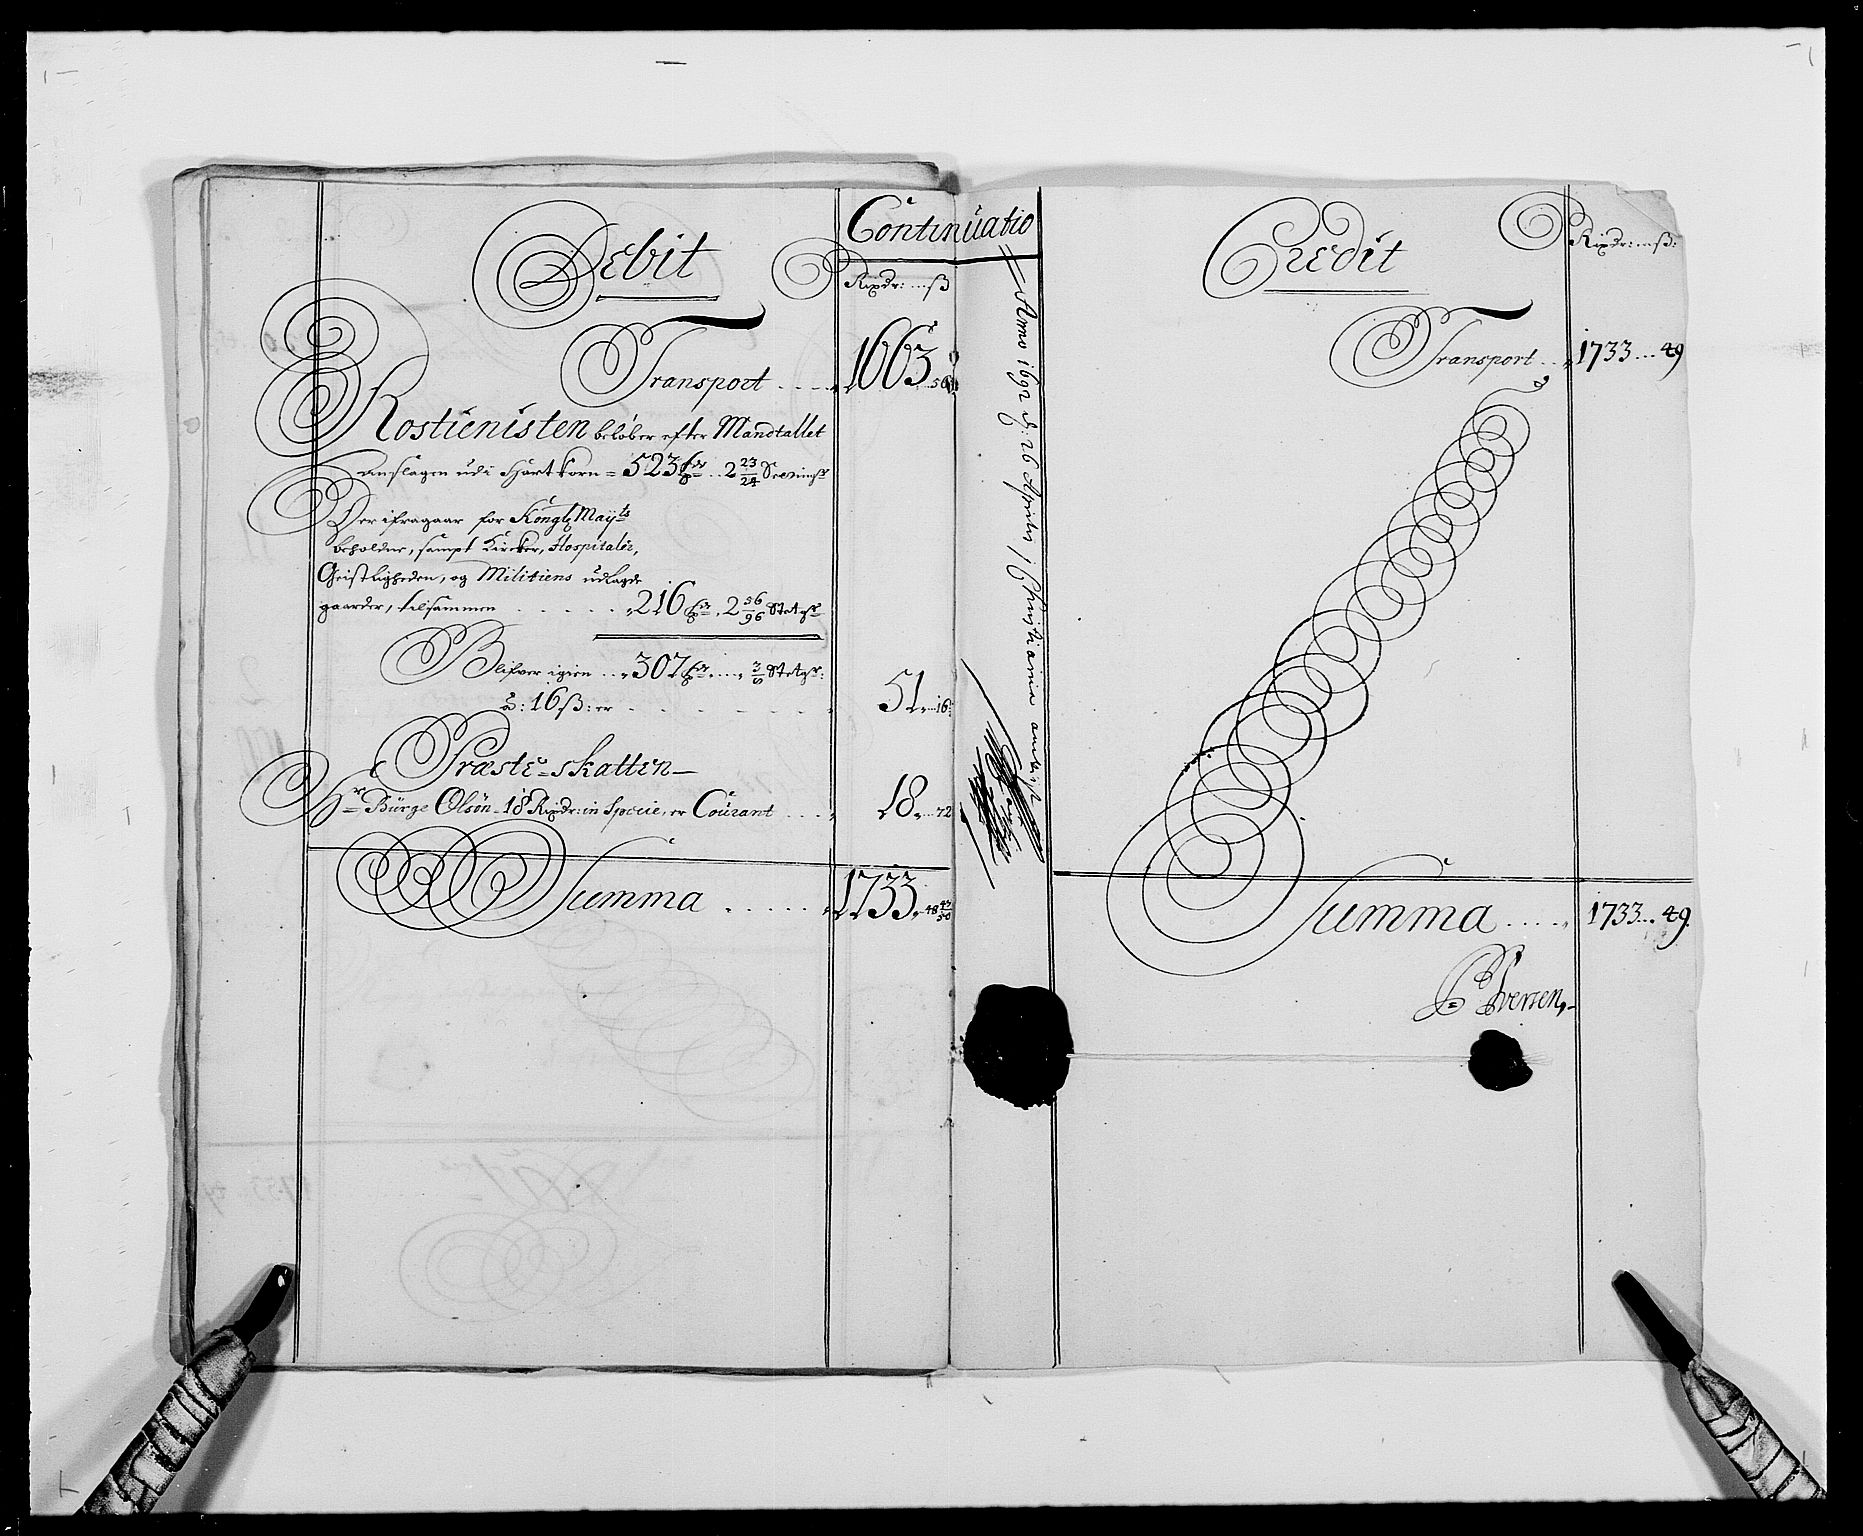 Debit
Continuatio
Rixdr: ß
Transport .... 1663
Rostienisten beløber efter Mandtallet
anslagen udi Hartkorn = 523 .. 2 23/24
Der ifragaar for Kongl Mayts
beholdne, sampt Kircker, Hospitaler,
Geistligheden, og Militiens udlagde
gaarder, tilsammen ...... 216 , 2 56/96
Blifver igien .. 307
a: 16 ß: er ...... 51 .. 16
Præste-skatten
Hr Bürge Olsøn 18 Rixdr: in Specie, er Courant .... 18 .. 72
Summa ...... 1733 .. 48 47/50
Anno 1692 d: 26 Aprilis, Christiania
Credit
Rixdr: ß:
Transport .. 1733 ... 49
Summa .... 1733 ... 49.
Iversen